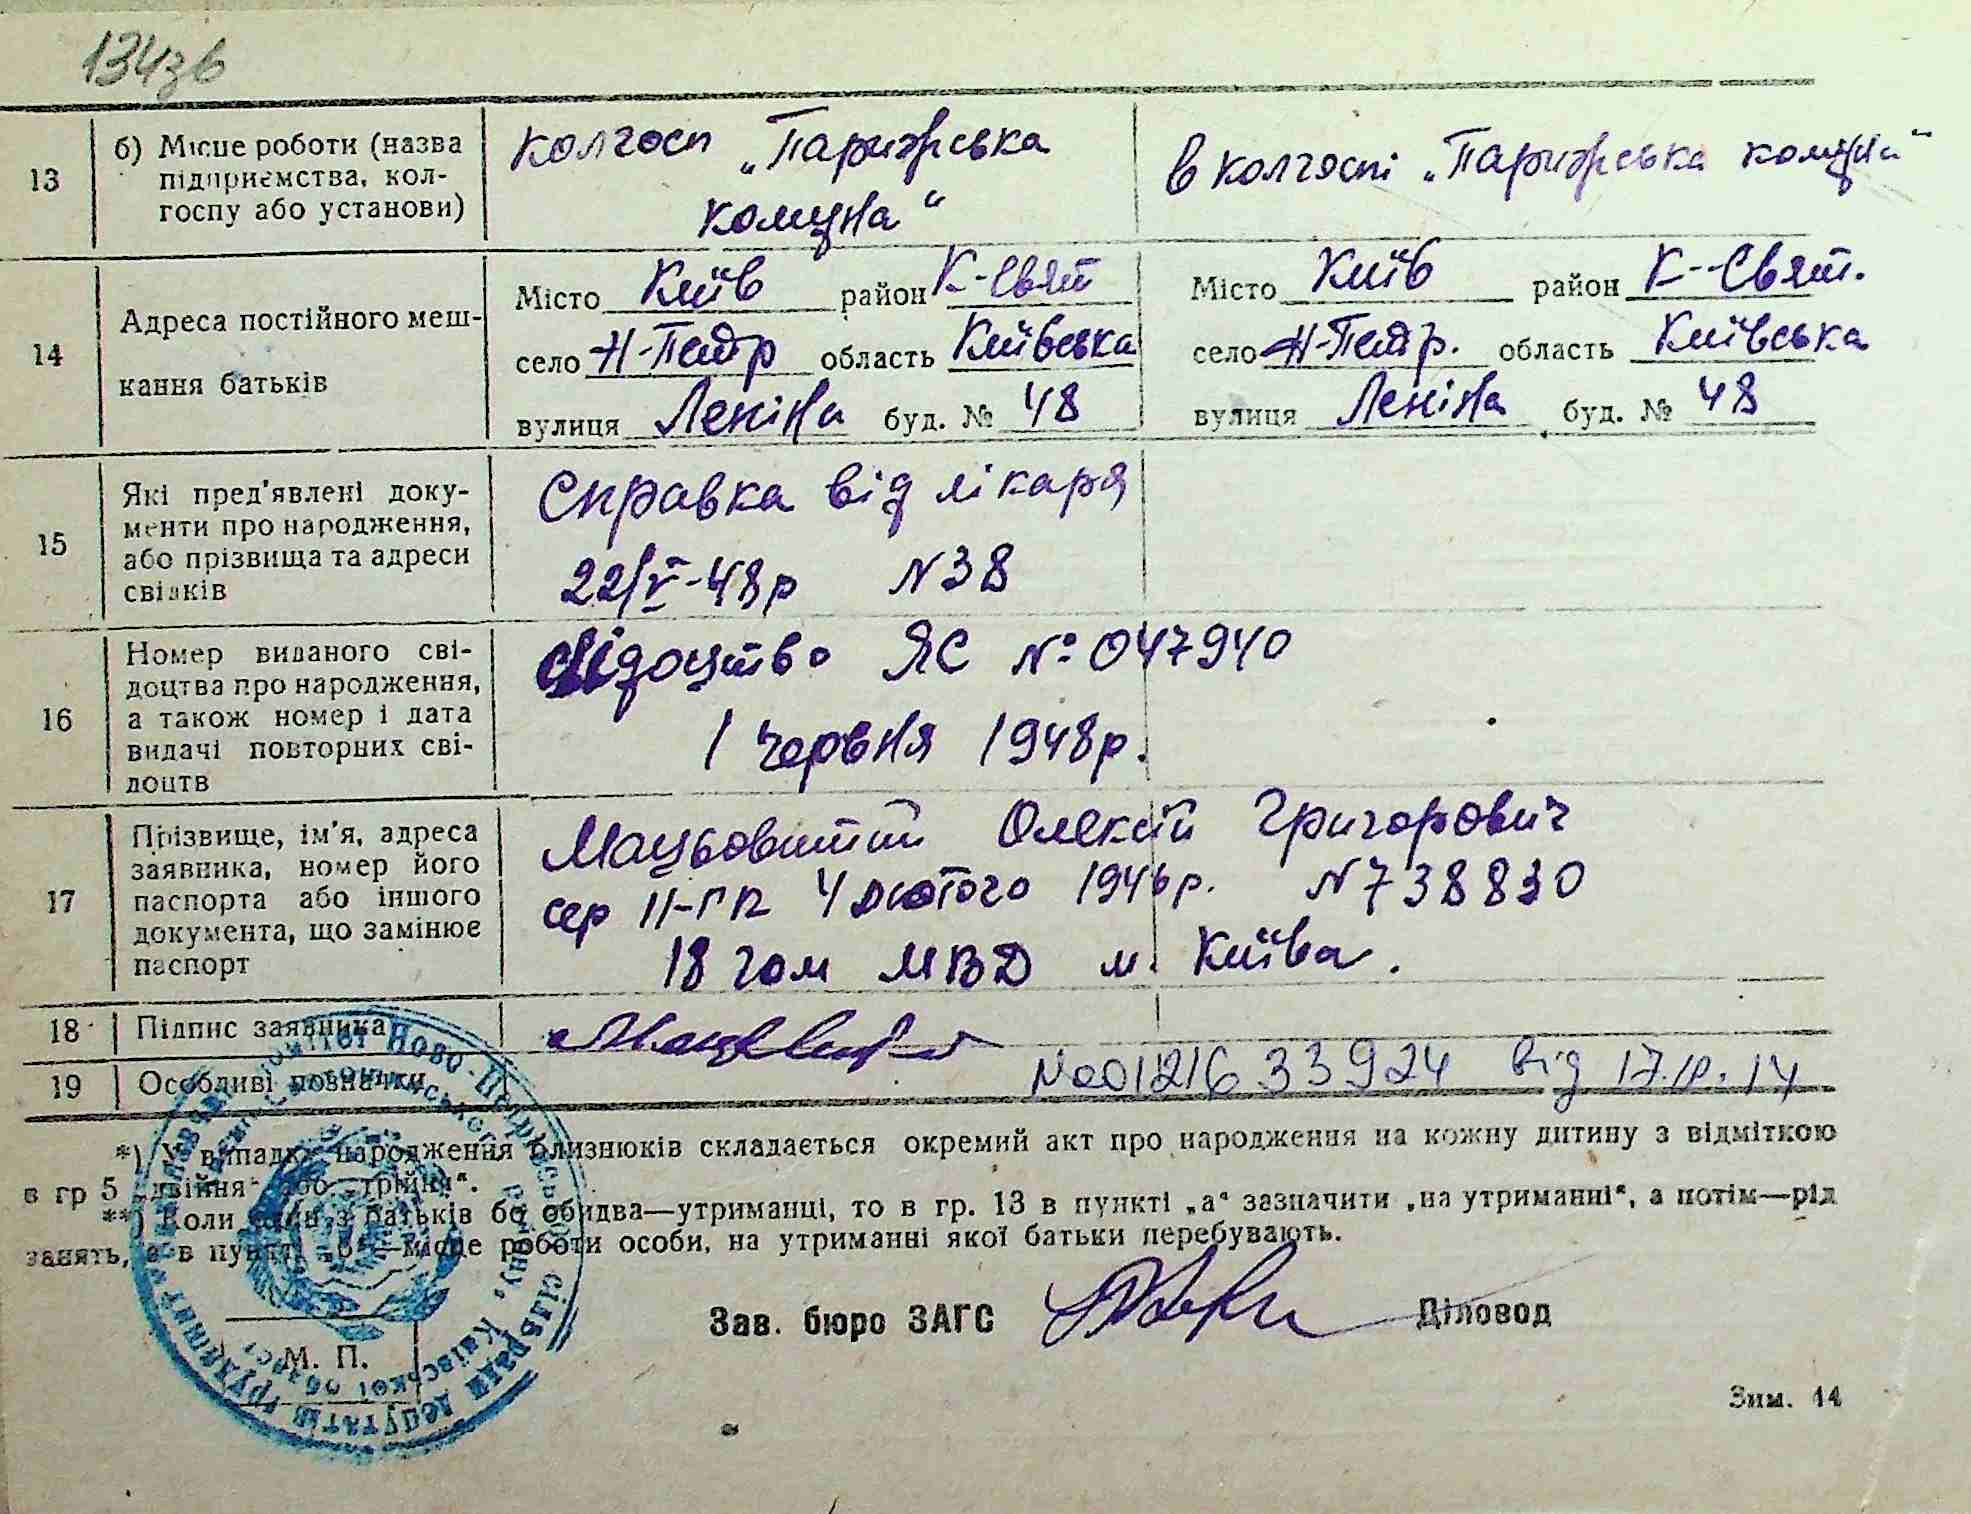 134зв
13 б) Місце роботи (назва підприємства, колгоспу або установи) колгосп „Парижська комуна“ в колгоспі „Парижська комуна“
14 Адреса постійного мешкання батьків
Місто Київ район К-Свят Місто Київ район К-Свят.
село Н-Петр область Київська село Н-Петр. область Київська
вулиця Леніна буд. № 48 вулиця Леніна буд. № 48
15 Які пред'явлені документи про народження, або прізвища та адреси свідків
Справка від лікаря
22/V-48р N38
16 Номер виданого свідоцтва про народження, а також номер і дата видачі повторних свідоцтв
свідоцтво ЯС № 047940
1 червня 1948р.
17 Прізвище, ім'я, адреса заявника, номер його паспорта або іншого документа, що замінює паспорт
Мацьовитий Олексій Григорович
сер II-ГК 4 лютого 1946р. N738830
18 гом МВД м. Київа.
18 Підпис заявника
19 Особливі позначки N00121633924 від 17.10.14
*) У випадку народження близнюків складається окремий акт про народження на кожну дитину з відміткою
в гр 5 „двійня“ або „трійня“.
**) Коли один з батьків бо обидва—утриманці, то в гр. 13 в пункті „а“ зазначити „на утриманні“, а потім—рід
занять, а в пункті „б“—місце роботи особи, на утриманні якої батьки перебувають.
Зав. бюро ЗАГС Діловод
М. П.
Ново-Петрівської сільради депутатів трудящих
району, Київської област
Зим. 14